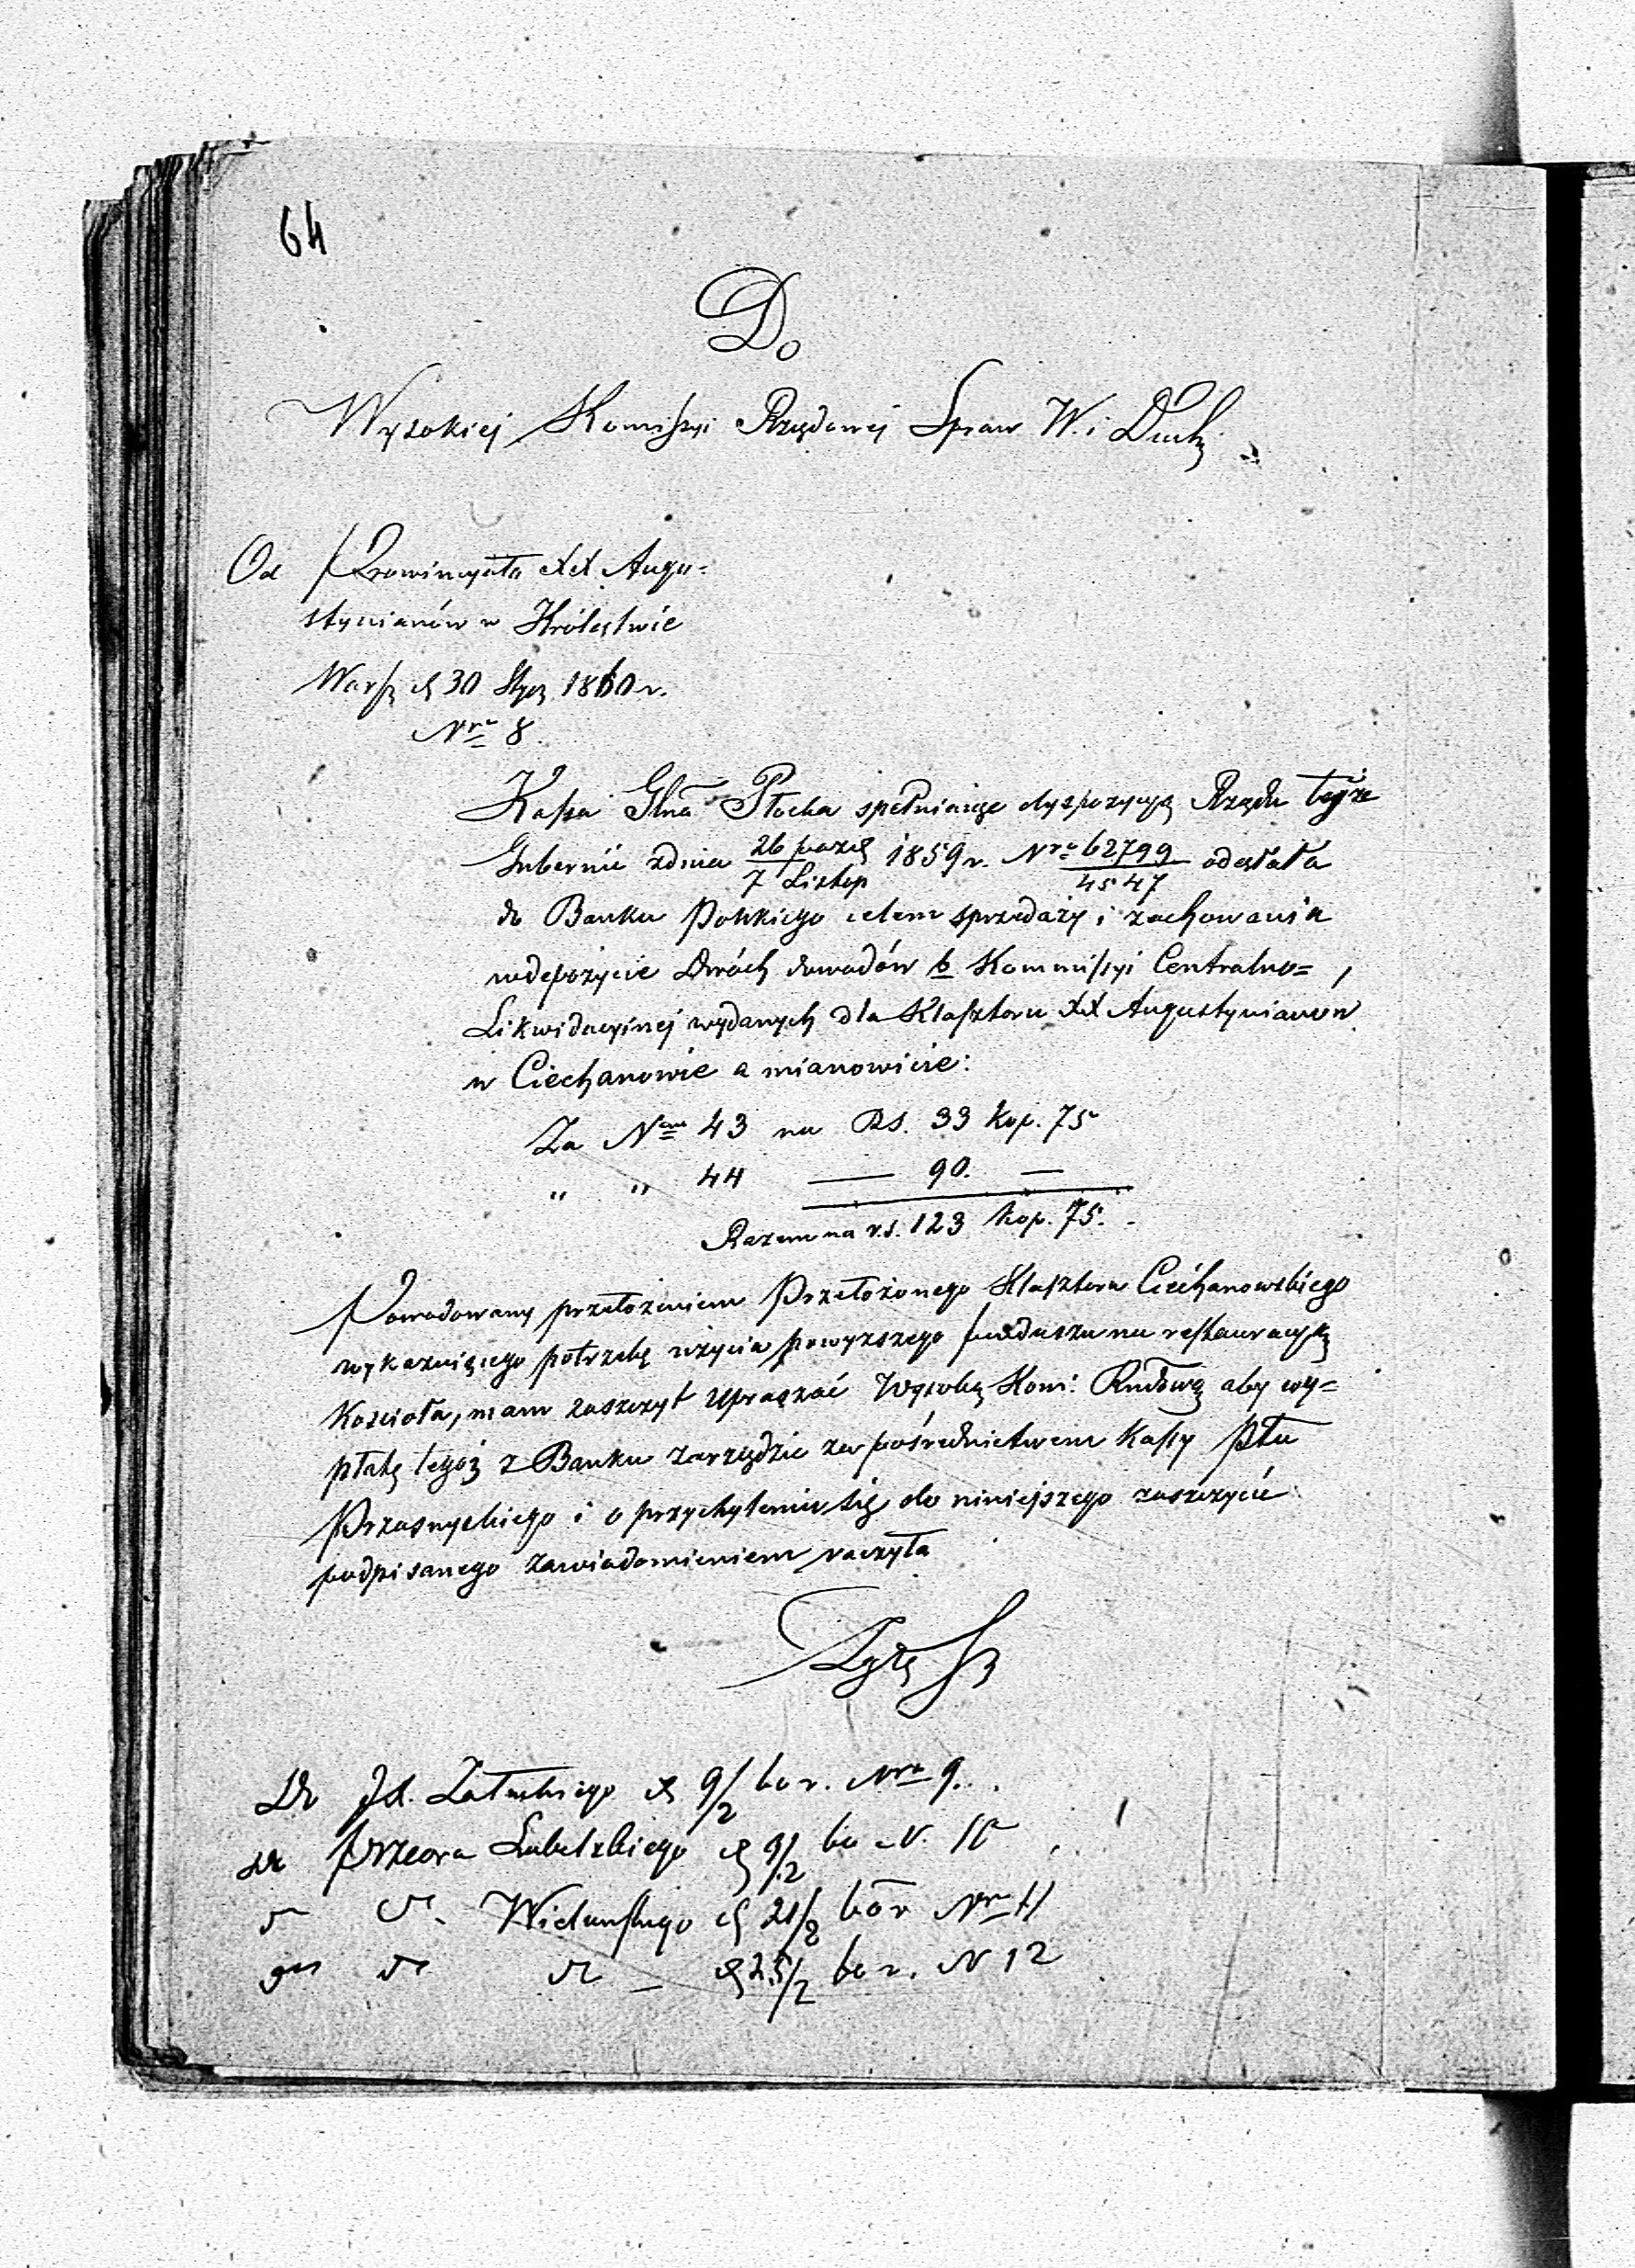 64
Do
Wysokiej Komissyi Rządowej Spraw W. i Duch
Od Prowincyała XX Augu-
stynianów w Królestwie
Warsz d 30 Stycz 1860 r.
Nro 8
Kassa Głna Płocka spełniając dyspozycyą Rządu tejże
Gubernii zdnia 26 pazd / 7 Listop 1859 r. Nro 62799 / 4547 odesłała
do Banku Polskiego celem sprzedaży i zachowania
wdepozycie dwóch dowodów b Kommissyi Centralno=
Likwidacyjnej wydanych dla Klasztoru XX Augustynianów
w Ciechanowie a mianowicie:
Za Nem 43 na RS. 33 kop. 75
" " 44 — 90. —
Razem na r.s. 123 kop. 75.
Powodowany przełożeniem Przełożonego Klasztoru Ciechanowskiego
wykazuiącego potrzebę użycia powyższego funduszu na restauracyą
Kościoła, mam zaszczyt upraszać Wysoką Kom: Rządową aby wy=
płatę tegoż z Banku zarządzić za pośrednictwem Kassy Ptu
Przasnyskiego i o przychyleniu się do niniejszego zaszczycić
podpisanego zawiadomieniem raczyła
Do Załuskiego d 9/2 60 r. Nro 9.
do Przeora Lubelskiego d 9/2 60 N. 10
Wieluńskiego d 21/2 60 r Nro 11
d 25/2 60 r. N 12